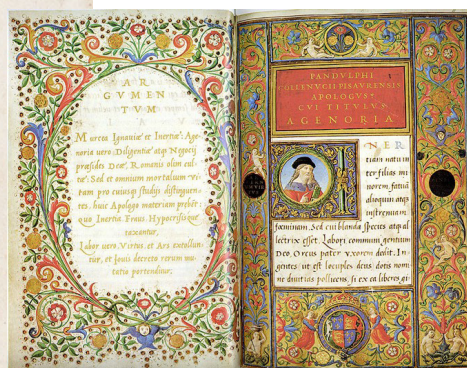 AR
GVMEN
TVM
Murcea Ignauiæ et Inertiæ: Age
noria uero Diligentiæ atqꝫ Negocij
præsides Deæ, Romanis olim cul
tæ: Sed et omnium mortalium ui
tam pro cuiusqꝫ studijs distinguen
tes, huic Apologo materiam præbet:
quo Inertia, Fraus, Hypocrisisque
taxantur,
Labor uero, Virtus, et Ars extollun
tur, et Iouis decreto rerum mu
tatio portenditur,
PANDVLPHI
COLLENVCII PISAVRENSIS
APOLOGVS
CVI TITVLVS
AGENORIA
INER
tiam natu in
ter filias mi
norem, fatuā
alioquin atqꝫ
industriam
fœminam, Sed cui blanda species atqꝫ al
lectrix esset, Labori communi gentium
Deo, Orcus pater uxorem dedit, In
gentes ut est locuples deus dotis nomi
ne diuitias pollicens, si ex ea liberos gi